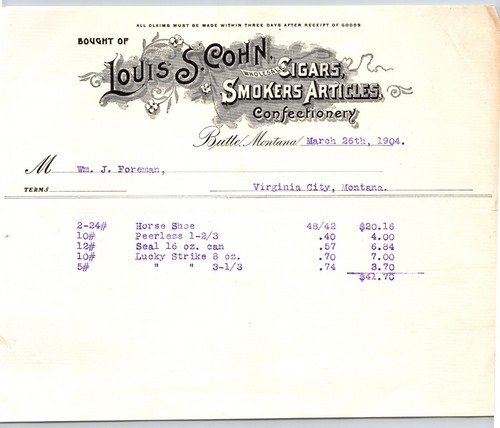 ALL CLAIMS MUST BE MADE WITHIN THREE DAYS AFTER RECEIPT OF GOODS
BOUGHT OF
LOUIS S. COHN,
WHOLESALE CIGARS,
& SMOKERS ARTICLES
Confectionery
Butte, Montana March 26th, 1904.
M Wm. J. Foreman,
TERMS Virginia City, Montana.
2-24# Horse Shoe 48/42 $20.16
10# Peerless 1-2/3 .40 4.00
12# Seal 16 oz. can .57 6.84
10# Lucky Strike 8 oz. .70 7.00
5# " " 3-1/3 .74 3.70
$41.70